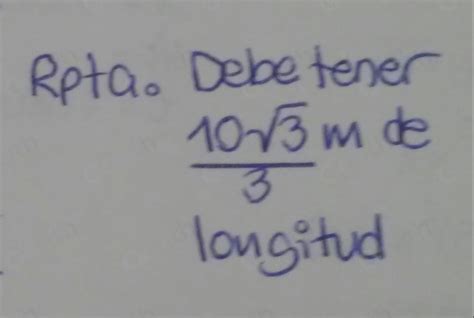 Rpta. Debe tener
10√3 m de
3
longitud